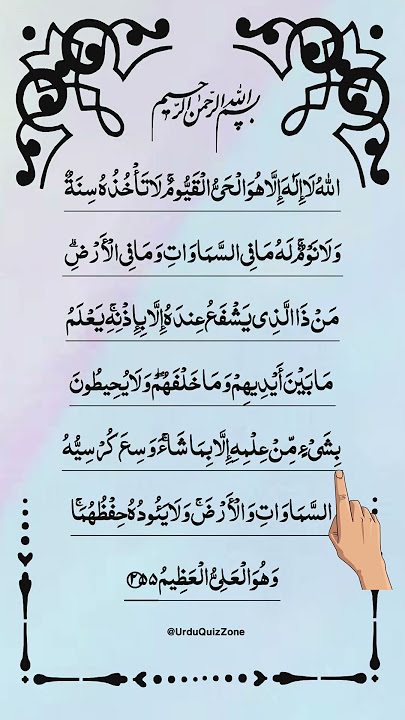 بسم الله الرحمن الرحیم
اللهُ لَا إِلَٰهَ إِلَّا هُوَ الْحَيُّ الْقَيُّومُ ۚ لَا تَأْخُذُهُ سِنَةٌ
وَلَا نَوْمٌ ۚ لَهُ مَا فِي السَّمَاوَاتِ وَمَا فِي الْأَرْضِ ۗ
مَنْ ذَا الَّذِي يَشْفَعُ عِندَهُ إِلَّا بِإِذْنِهِ ۚ يَعْلَمُ
مَا بَيْنَ أَيْدِيهِمْ وَمَا خَلْفَهُمْ ۖ وَلَا يُحِيطُونَ
بِشَيْءٍ مِّنْ عِلْمِهِ إِلَّا بِمَا شَاءَ ۚ وَسِعَ كُرْسِيُّهُ
السَّمَاوَاتِ وَالْأَرْضَ ۖ وَلَا يَئُودُهُ حِفْظُهُمَا ۚ
وَهُوَ الْعَلِيُّ الْعَظِيمُ ۲۵۵
@UrduQuizZone